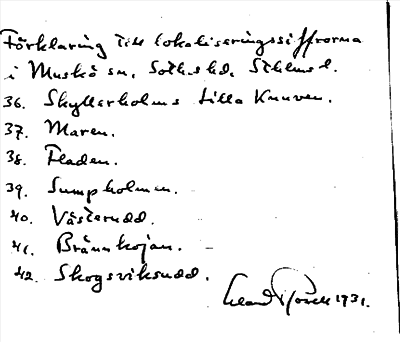 Förklaring till lokaliseringssiffrorna
i Muskö sn, Sotholms hd, Sthlms l.
36. Skyllerholms Lilla Knuven.
37. Maren.
38. Fladen.
39. Sumpholmen.
40. Västerudd.
41. Brännkojan.
42. Skogsviksudd.
1931.